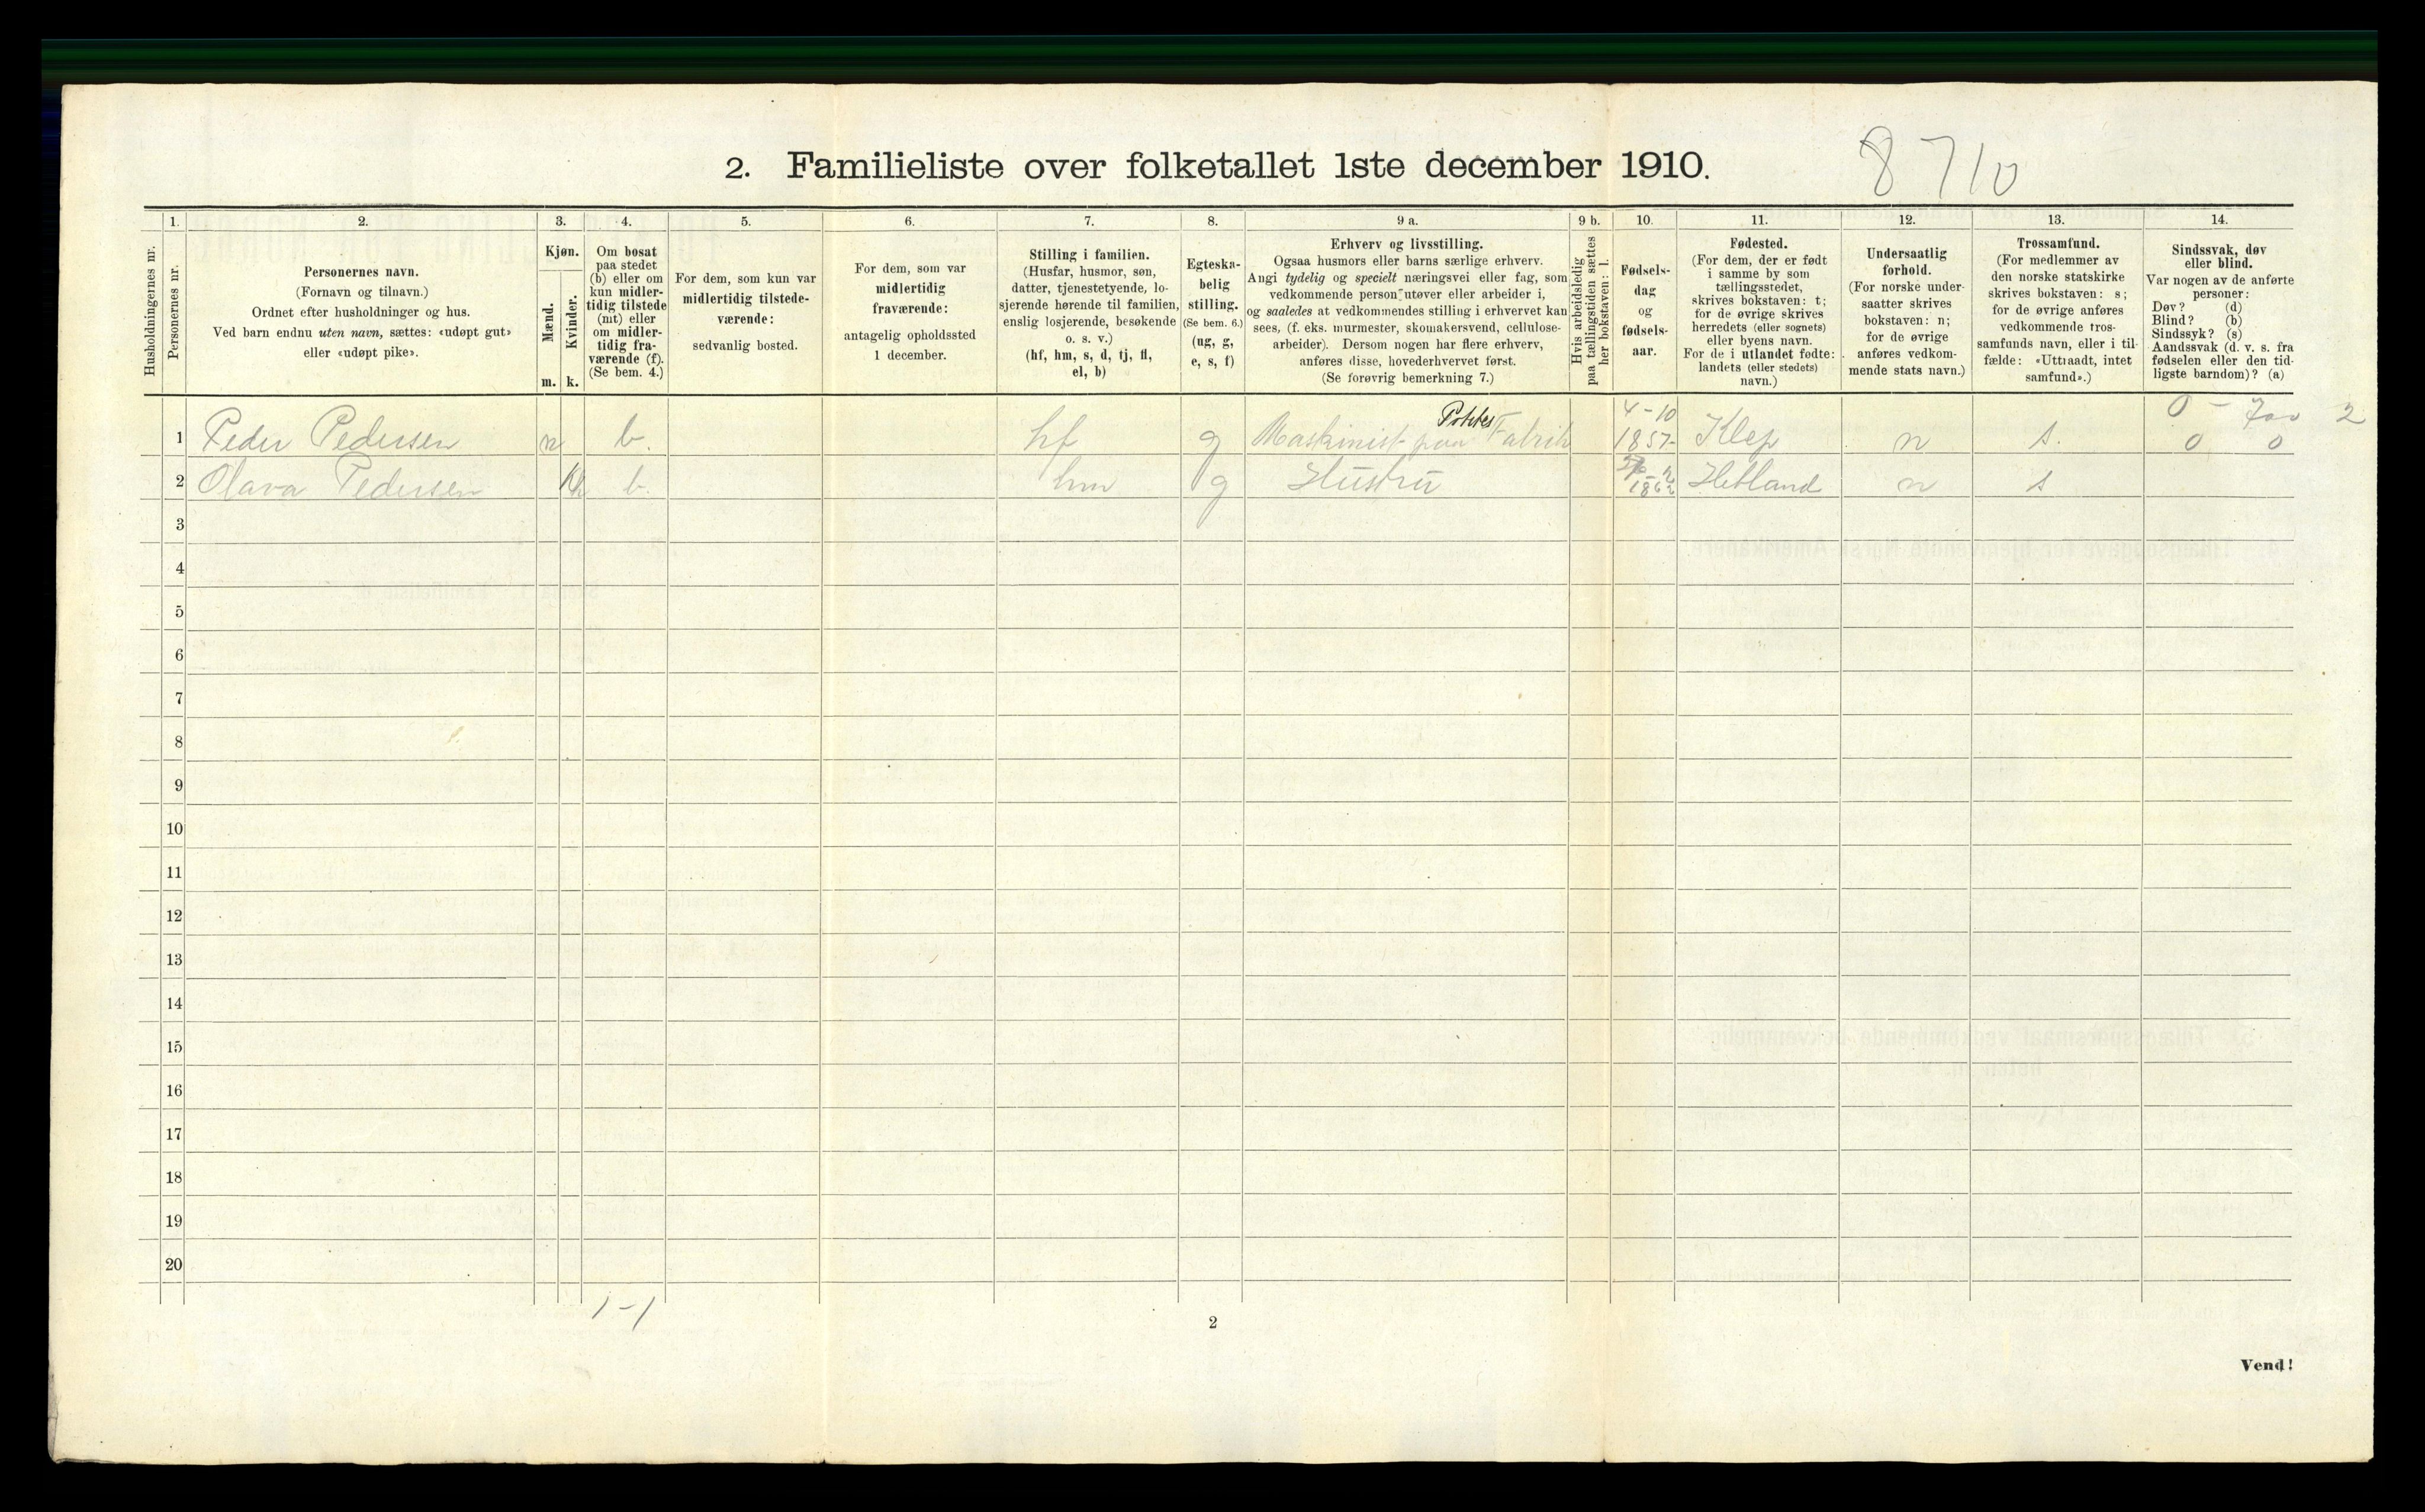 2. Familieliste over folketallet 1ste december 1910.
8710
1. 2. 3. 4. 5. 6. 7. 8. 9 a. 9 b. 10. 11. 12. 13. 14.
Husholdningernes nr.
Personernes nr.
Personernes navn.
(Fornavn og tilnavn.)
Ordnet efter husholdninger og hus.
Ved barn endnu uten navn, sættes: «udøpt gut»
eller «udøpt pike».
Kjøn.
Mænd.
Kvinder.
m. k.
Om bosat
paa stedet
(b) eller om
kun midler-
tidig tilstede
(mt) eller
om midler-
tidig fra-
værende (f).
(Se bem. 4.)
For dem, som kun var
midlertidig tilstede-
værende:
sedvanlig bosted.
For dem, som var
midlertidig
fraværende:
antagelig opholdssted
1 december.
Stilling i familien.
(Husfar, husmor, søn,
datter, tjenestetyende, lo-
sjerende hørende til familien,
enslig losjerende, besøkende
o. s. v.)
(hf, hm, s, d, tj, fl,
el, b)
Egteska-
belig
stilling.
(Se bem. 6.)
(ug, g,
e, s, f)
Erhverv og livsstilling.
Ogsaa husmors eller barns særlige erhverv.
Angi tydelig og specielt næringsvei eller fag, som
vedkommende person utøver eller arbeider i,
og saaledes at vedkommendes stilling i erhvervet kan
sees, (f. eks. murmester, skomakersvend, cellulose-
arbeider). Dersom nogen har flere erhverv,
anføres disse, hovederhvervet først.
(Se forøvrig bemerkning 7.)
Hvis arbeidsledig
paa tællingstiden sættes
her bokstaven: l.
Fødsels-
dag
og
fødsels-
aar.
Fødested.
(For dem, der er født
i samme by som
tællingsstedet,
skrives bokstaven: t;
for de øvrige skrives
herredets (eller sognets)
eller byens navn.
For de i utlandet fødte:
landets (eller stedets)
navn.)
Undersaatlig
forhold.
(For norske under-
saatter skrives
bokstaven: n;
for de øvrige
anføres vedkom-
mende stats navn.)
Trossamfund.
(For medlemmer av
den norske statskirke
skrives bokstaven: s;
for de øvrige anføres
vedkommende tros-
samfunds navn, eller i til-
fælde: «Uttraadt, intet
samfund».)
Sindssvak, døv
eller blind.
Var nogen av de anførte
personer:
Døv? (d)
Blind? (b)
Sindssyk? (s)
Aandssvak (d. v. s. fra
fødselen eller den tid-
ligste barndom)? (a)
4-10 0 - 2
1 Peder Pedersen b. hf g Maskinist paa Fabrik 1857- Klep n s. 0 0
2 Olava Pedersen k b. hm g Hustru 1862 Hetland n s
3
4
5
6
7
8
9
10
11
12
13
14
15
16
17
18
19
20
1-1
2
Vend!